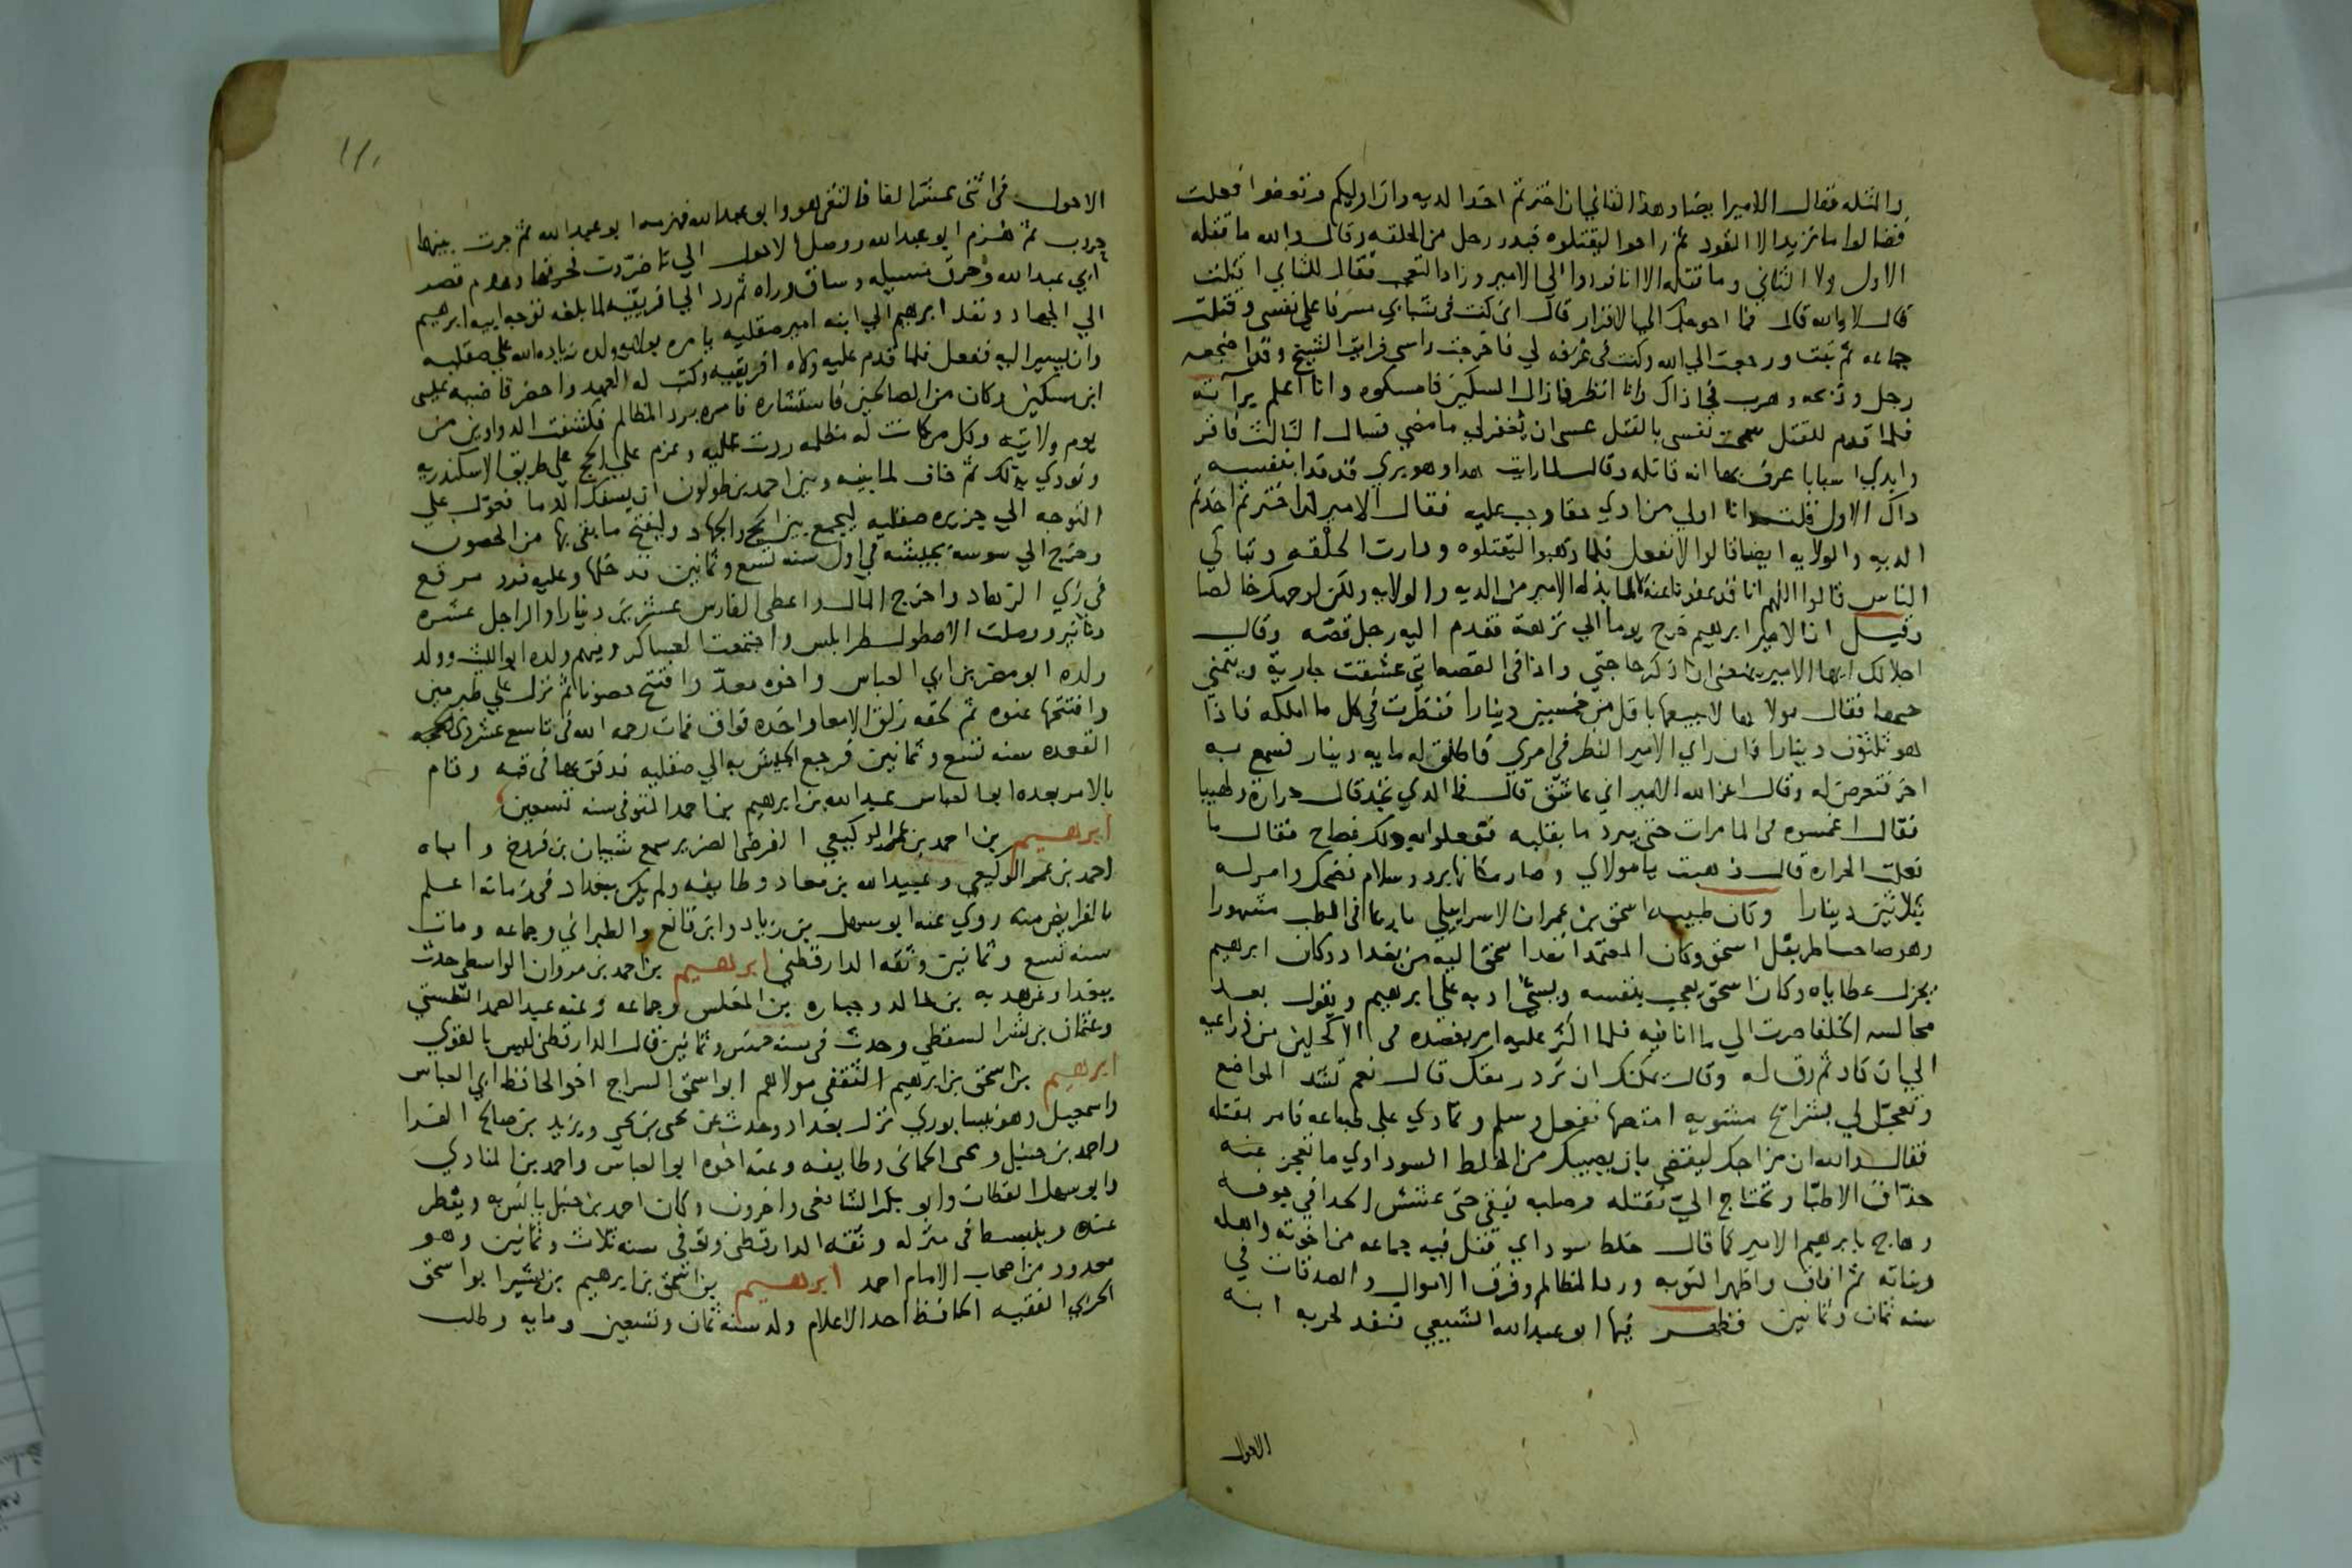 والمثله فقال الامير ايضا وهذا الثاني ان اخترتم اخذ الديه وان اوليكم وتعوضوا فعلت
فقالوا ما نريد الا القود ثم راحوا ليقتلوه فبدر رجل من الحلقه وقال والله ما قتله
الاول ولا الثاني وما قتله الا انا فردوا الي الامير وزاد التعجب فقال للثاني اقتلت
قال لا والله قال فما احوجك الي الاقرار قال اني كنت في شبابي مسرفا علي نفسي وقتلت
جماعه ثم تبت ورجعت الي الله وكنت في غرفه لي فاخرجت راسي فرايت الشيخ وقد اضجعه
رجل وذبحه وهرب في ذاك وانا انظر فازال السكين فامسكوه وانا اعلم برآته
فلما قدم للقتل سمحت نفسي بالقتل عسي ان يغفر لي ما مضي فسال الثالث فاقر
وابدي اسبابا عرف بها انه قاتله وقال لما رايت هذا وهو بري قد فدا بنفسه
ذاك الاول قلت انا اولي من ادي حقا وجب عليه فقال الامير ان اخترتم اخذتم
الديه والولايه ايضا قالوا لا نفعل فلما ذهبوا ليقتلوه ودارت الحلقه وتباكي
الناس قالوا اللهم انا قد عفونا عنه لا لما بذله الامير من الديه والولايه ولكن لوجهك خالصا
وقيل ان الامير ابرهيم خرج يوما الي نزهة فقدم اليه رجل قصّه وقال
اجلالك ايها الامير يمنعني ان اذكر حاجتي واذا في القصه اني عشقت جارية وتيمني
حبها فقال مولاها لا ابيعها باقل من خمسين دينارا فنظرت في كل ما املكه فاذا
هو ثلثون دينارا فان راي الامير النظر في امري فاطلق له مايه دينار فسمع به
اخر فتعرض له وقال اعز الله الامير اني عاشق قال فما الذي تجد قال حرارة ولهيبا
فقال اغمسوه في الما مرات حتي يبرد ما بقلبه ففعلوا به ذلك فصاح فقال ما
فعلت الحراره قال ذهبت يا مولاي وصار مكانها برد وسلام فضحك وامر له
بثلاثين دينارا وكان طبيبه اسحق بن عمران الاسرايلي بارعا في الطب مشهورا
وهو صاحب اطريفل اسحق وكان المعتمد انفد اسحق اليه من بغداد وكان ابرهيم
يجزل عطاياه وكان اسحق يعجب بنفسه ويسئ ادبه علي ابرهيم ويقول بعد
مجالسه الخلفا صرت الي ما انا فيه فلما اكثر عليه امر بفصده في الاكحلين من ذراعيه
الي ان كاد ثم رق له وقال يمكنك ان ترد رمقك قال نعم تشد المواضع
وتعجل لي بشرايح مشويه امتصها ففعل وسلم وتمادي علي طباعه فامر بقتله
فقال والله ان مزاجك ليقضي بان يصيبك من الخلط السوداوي ما تعجز عنه
حذاق الاطبا وتحتاج اليّ فقتله وصلبه فبقي حتي عشش الحدا في جوفه
وهاج بابرهيم الامير كما قال خلط سوداي فقتل فيه جماعه من اخوته واهله
وبناته ثم افاق واظهر التوبه ورد المظالم وفرق الاموال والصدقات في
سنه ثمان وثمانين فظهر فيها ابو عبد الله الشيعي فنفد لحربه ابنه
الاحول
الاحول في اثني عشر الفا فالتقي هو وابو عبد الله فهزمه ابو عبد الله ثم جرت بينهما
حروب ثم هزم ابو عبد الله ووصل الاحول الي تاخروت فحرقها وهدم قصر
ابي عبد الله وحرق ... وساق وراه ثم رد الي افريقيه لما بلغه توجه ابيه ابرهيم
الي الجهاد ونفد ابرهيم الي ابنه امير صقليه يامره بولايه ولده زياده الله علي صقليه
وان يسير اليه ففعل فلما قدم عليه ولاه افريقيه وكتب له العهد واحضر قاضيه عيسي
ابن مسكين وكان من الصالحين فاستشاره فامره برد المظالم فكشفت الدواوين من
يوم ولايته وكل من كانت له مظلمه ردت عليه وعزم علي الحج علي طريق الاسكندريه
ونودي بذلك ثم خاف لما بينه وبين احمد بن طولون ان يسفك الدما فعول علي
التوجه الي جزيره صقليه ليجمع بين الحج والجهاد وليفتح ما بقي بها من الحصون
وخرج الي سوسة بجيشه في اول سنه تسع وثمانين فدخلها وعليه فرو مرقع
في زي الزهاد واخرج المال واعطي الفارس عشرين دينارا والراجل عشره
دنانير ووصلت الاصطول طرابلس واجتمعت العساكر وفيهم ولده ابو الليث وولد
ولده ابو مضر بن ابي العباس واخوه معدّ وافتتح حصونا ثم نزل علي طبرمين
وافتتحها عنوه ثم لحقه زلق الامعا واخذه فواق فمات رحمه الله في تاسع عشر ذي الحجه
القعده سنه تسع وثمانين فرجع الجيش به الي صقليه فدفن بها في قبه وقام
بالامر بعده ابو العباس عبد الله بن ابرهيم بن احمد المتوفي سنه تسعين
ابرهيم بن احمد بن عمر الوكيعي الفرضي الضرير سمع شيبان بن فروخ واباه
احمد بن عمر الوكيعي وعبيد الله بن معاد وطايفه ولم يكن ببغداد في زمانه اعلم
بالفرايض منه روي عنه ابو سهل بن زياد وابن قانع والطبراني وجماعه ومات
سنه تسع وثمانين وثقه الدارقطني ابرهيم بن احمد بن مروان الواسطي حدث
ببغداد عن هدبه بن خالد وجباره بن المغلس وجماعه وعنه عبد الصمد الطستي
وعثمان بن بشر السقطي وحدث في سنه خمس وثمانين قال الدارقطني ليس بالقوي
ابرهيم بن اسحق بن ابرهيم الثقفي مولاهم ابو اسحق السراج اخو الحافظ ابي العباس
واسمعيل وهو نيسابوري نزل بغداد وحدث عن يحيي بن يحيي ويزيد بن صالح الفرا
واحمد بن حنبل ويحيي الحماني وطايفه وعنه اخوه ابو العباس واحمد بن المنادي
وابو سهل القطان وابو بكر الشافعي واخرون وكان احمد بن حنبل يانس به ويفطر
عنده وينبسط في منزله وثقه الدارقطني وتوفي سنه ثلاث وثمانين وهو
معدود من اصحاب الامام احمد ابرهيم بن اسحق بن ابرهيم بن بشير ابو اسحق
الحربي الفقيه الحافظ احد الاعلام ولد سنه ثمان وتسعين ومايه وطلب